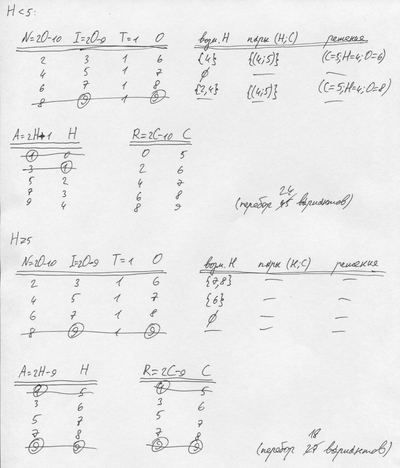 H<5:
N=2O-10 I=2O-9 T=1 O возм. H пары (H;C) решения
2 3 1 6 {4} {(4;5)} (C=5;H=4;O=6)
4 5 1 7 ∅ — —
6 7 1 8 {2,4} {(4;5)} (C=5;H=4;O=8)
8 9 1 9 — — —
A=2H+1 H R=2C-10 C
1 0 0 5
3 1 2 6
5 2 4 7
7 3 6 8
9 4 8 9
24
(перебор вариантов)
H≥5
N=2O-10 I=2O-9 T=1 O возм. H пары (H,C) решения
2 3 1 6 {7,8} — —
4 5 1 7 {6} — —
6 7 1 8 ∅ — —
8 9 1 9 — — —
A=2H-9 H R=2C-9 C
1 5 1 5
3 6 3 6
5 7 5 7
7 8 7 8
9 9 9 9
18
(перебор вариантов)